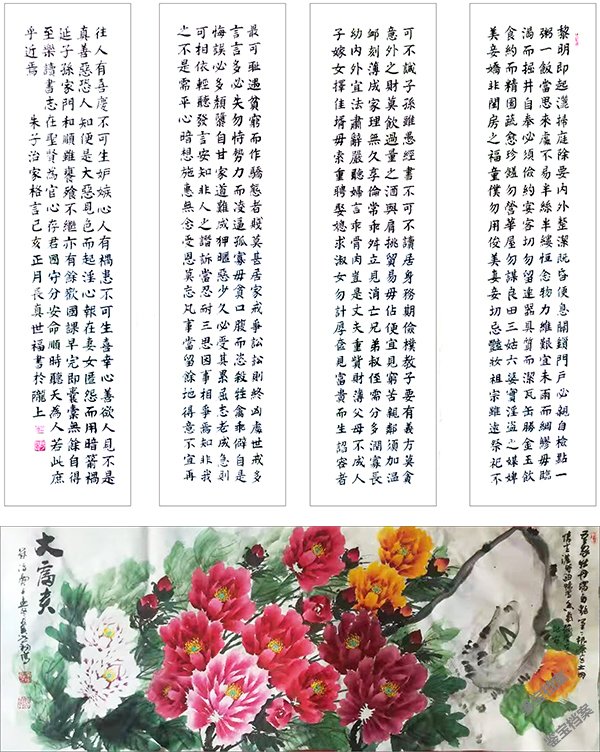 黎明即起灑掃庭除要內外整潔既昏便息關鎖門戶必親自檢點一
粥一飯當思來處不易半絲半縷恒念物力維艱宜未雨而綢繆毋臨
渴而掘井自奉必須儉約宴客切勿留連器具質而潔瓦缶勝金玉飲
食約而精園蔬愈珍饈勿營華屋勿謀良田三姑六婆實淫盜之媒婢
美妾嬌非閨房之福童僕勿用俊美妻妾切忌艷妝祖宗雖遠祭祀不
可不誠子孫雖愚經書不可不讀居身務期儉樸教子要有義方莫貪
意外之財莫飲過量之酒與肩挑貿易毋佔便宜見窮苦親鄰須加溫
卹刻薄成家理無久享倫常乖舛立見消亡兄弟叔侄需分多潤寡長
幼內外宜法肅辭嚴聽婦言乖骨肉豈是丈夫重貲財薄父母不成人
子嫁女擇佳壻毋索重聘娶媳求淑女勿計厚奩見富貴而生諂容者
最可恥遇貧窮而作驕態者賤莫甚居家戒爭訟訟則終凶處世戒多
言言多必失勿恃勢力而凌逼孤寡毋貪口腹而恣殺牲禽乖僻自是
悔誤必多頹惰自甘家道難成狎暱惡少久必受其累屈志老成急則
可相依輕聽發言安知非人之譖訴當忍耐三思因事相爭焉知非我
之不是需平心暗想施惠無念受恩莫忘凡事當留餘地得意不宜再
往人有喜慶不可生妒嫉心人有禍患不可生喜幸心善欲人見不是
真善惡恐人知便是大惡見色而起淫心報在妻女匿怨而用暗箭禍
延子孫家門和順雖饔飧不繼亦有餘歡國課早完即囊橐無餘自得
至樂讀書志在聖賢為官心存君國守分安命順時聽天為人若此庶
乎近焉 朱子治家格言己亥正月長真世福書於隴上
大富貴
鉴宝档案